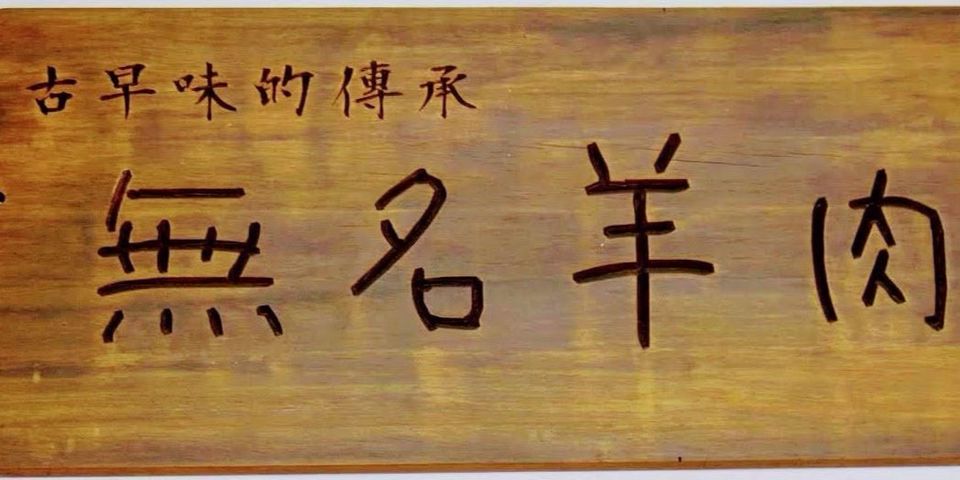 古早味的傳承
無名羊肉